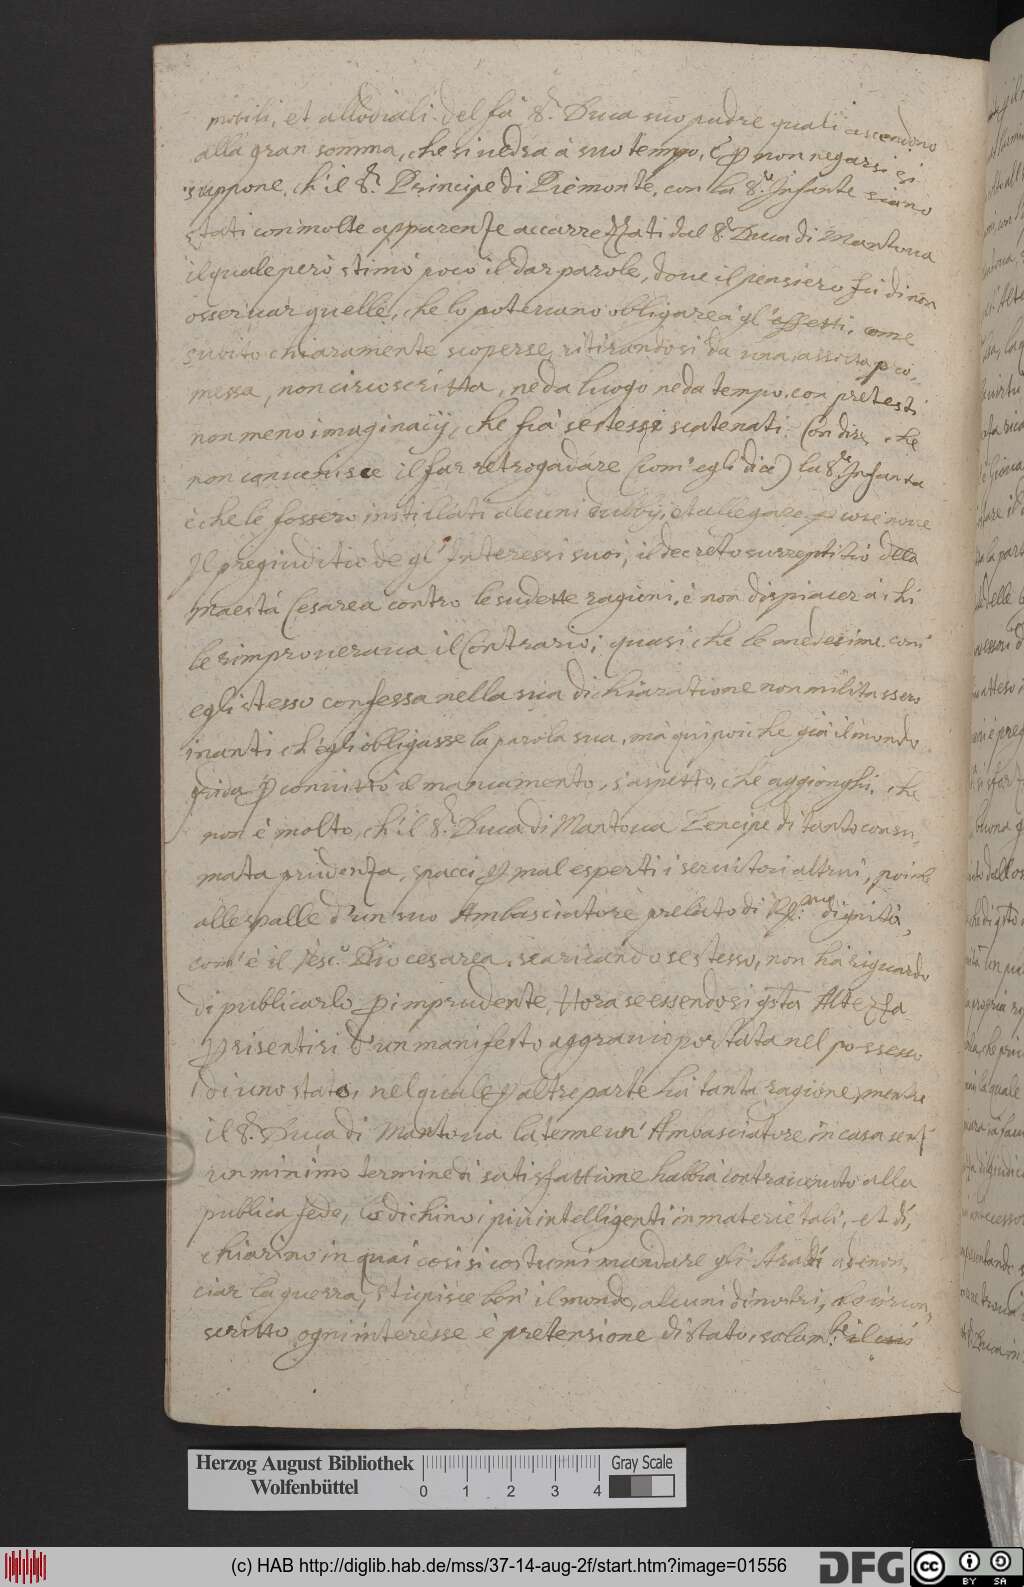 mobili, et allodiali del fà S.r Duca suo padre quali ascendono
alla gran somma, che si uedrà à suo tempo, è p non negarsi si
suppone, ch'il S.r Principe di Piemonte, con la S.ra Infante siano
stati con molte apparenze accarezzati dal S.r Duca di Mantoua
il quale però stimò poco il dar parole, doue il pensiero fù di non
osseruar quelle, che lo poteuano obligare à gl'effetti, come
subito chiaramente scoperse, ritirandosi da una assoluta pro,
messa, non circoscritta, ne da luogo ne da tempo, con pretesti
non meno imaginarij, che frà se stessi scatenati. Con dire, che
non conueniste il far retrogadare (com'egli dice) la S.ra Infanta
è che le fossero instillati alcuni dubbij, et allegare p cose noue
Il pregiuditio de gl'Interessi suoi, il decreto surreptitio della
Maestà Cesarea contro le sudette ragioni, è non dispiacer à chi
le rimproueraua il Contrario; quasi che le medesime com'
egli stesso confessa nella sua dichiaratione non militassero
inanti ch'egli obligasse la parola sua, mà qui poi che già il mondo
grida p conuitto il mancamento, s'aspetto, che aggionghi, che
non è molto, ch'il S.r Duca di Mantoua Prencipe di tanto consu,
mata prudenza, spacci p mal esperti i seruitori altrui, poiche
alle spalle d'un suo Ambasciatore prelato di dignità,
com'è il Vesc.o Diocesarea, scaricando se stesso, non hà riguardo
di publicarlo p imprudente, Hora se essendosi q.sta Altezza
p risentirsi d'un manifesto aggrauio portata nel possesso
di uno stato, nel quale p altre parte hà tanta ragione, mentre
il S.r Duca di Mantoua la tenne un'Ambasciatore in casa senz'
un minimo termine di satisfattione habbia contrauenuto alla
publica fede, lo dichino i più intelligenti in materie tali, et di,
chiarino in quai casi si costumi mandare gli Araldi à denon,
ciar la guerra, stupisce ben' il mondo, alcuni di nostri,
scritto ogni interesse è pretensione di stato, solam.te
Herzog August Bibliothek
Wolfenbüttel
0 1 2 3 4
Gray Scale
(c) HAB http://diglib.hab.de/mss/37-14-aug-2f/start.htm?image=01556
DFG
cc BY SA